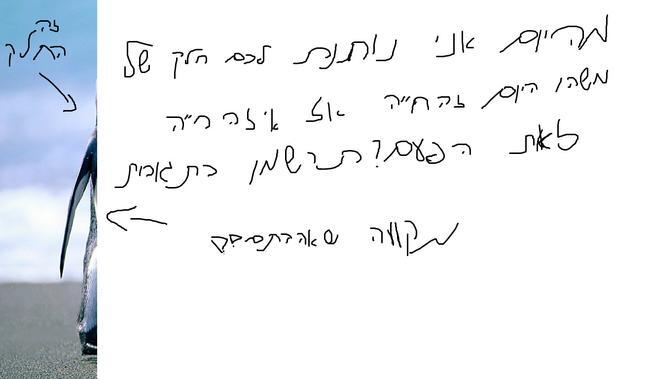 זה
החלק
מהיום אני נותנת לכם חלק של
משהו היום זה חייה אז איזה חייה
זאת הפעם? תרשמו בתגובות
מקווה שאהבתם